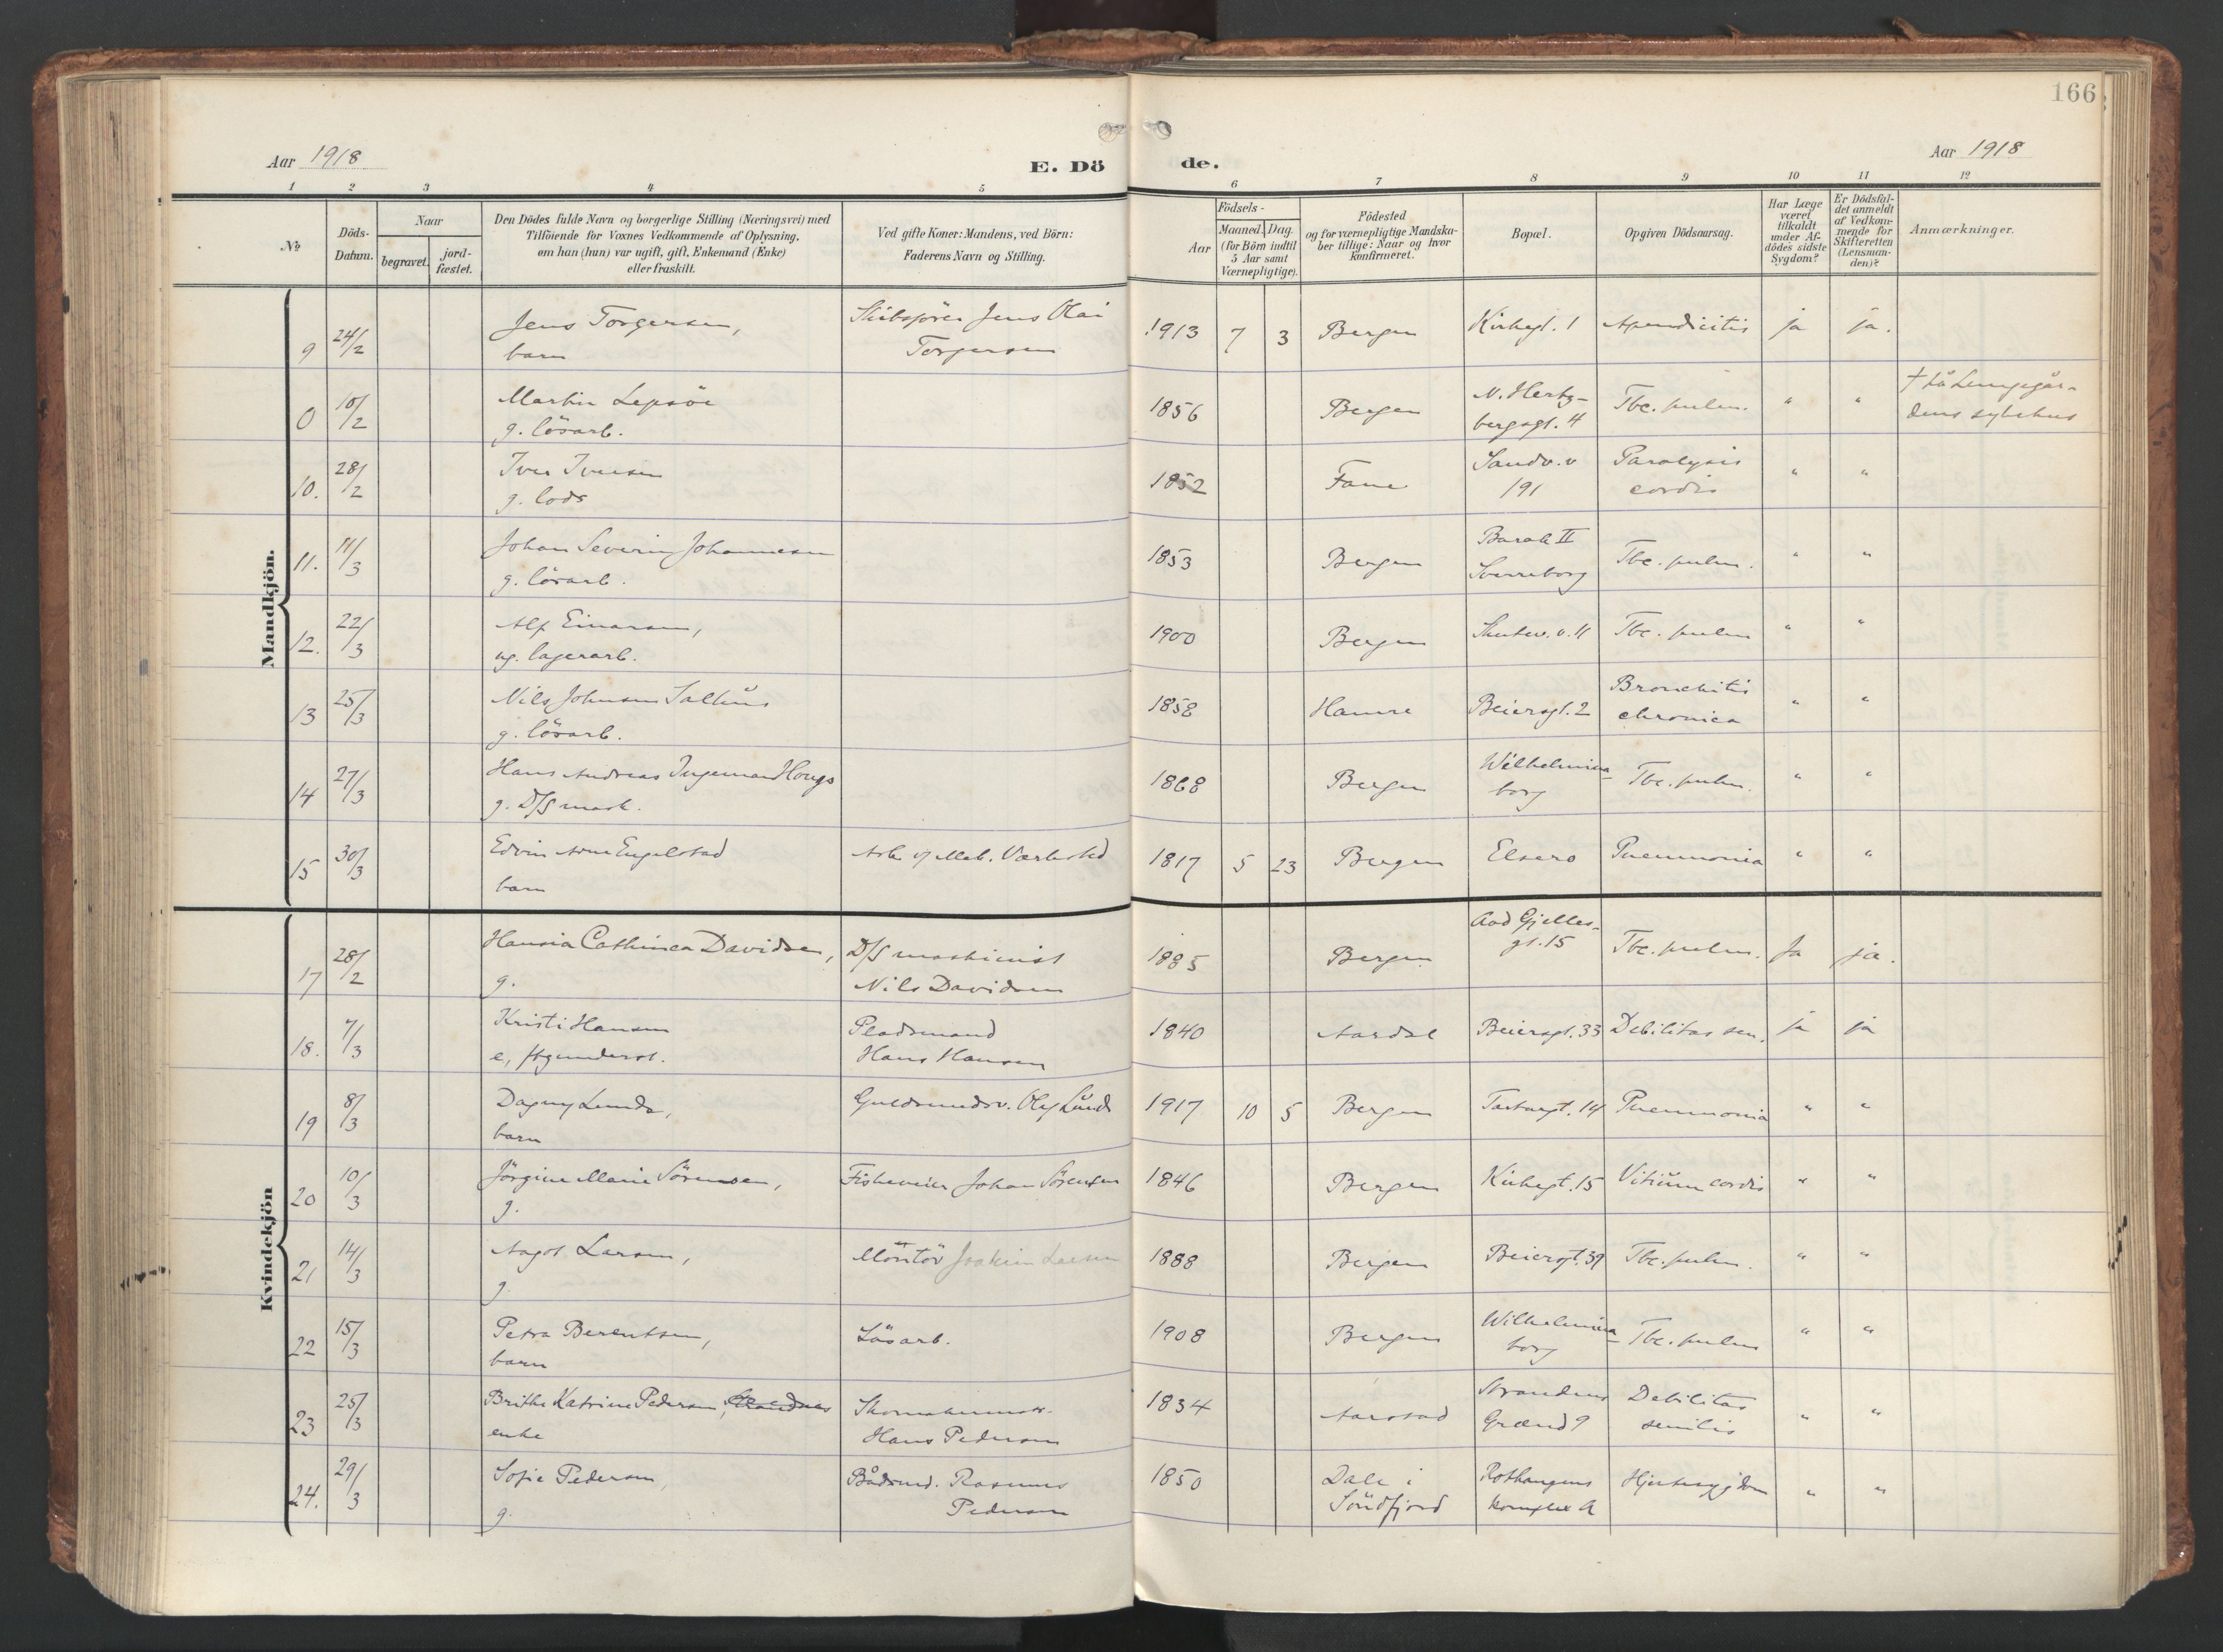 166
Aar 1918
E. Dö de.
Aar 1918
1 2 3 4 5 6 7 8 9 10 11 12
No
Döds-
Datum.
Naar
begravet.
jord-
fæstet.
Den Dödes fulde Navn og borgerlige Stilling (Næringsvei) med
Tilföiende for Voxnes Vedkommende af Oplysning,
om han (hun) var ugift, gift, Enkemand (Enke)
eller fraskilt.
Ved gifte Koner: Mandens, ved Börn:
Faderens Navn og Stilling.
Födsels-
Aar
Maaned.
Dag.
(for Börn indtil
5 Aar samt
Værnepligtige).
Födested
og for værnepligtige Mandska-
ber tillige: Naar og hvor
konfirmeret.
Bopæl.
Opgiven Dödsaarsag.
Har Læge
været
tilkaldt
under Af-
dödes sidste
Sygdom?
Er Dödsfal-
det anmeldt
af Vedkom-
mende for
Skifteretten
(Lensman-
den)?
Anmærkninger.
Mandkjön.
9 24/2 Jens Torgersen, Skibsförer Jens Olai 1913 7 3 Bergen Kirkegt. 1 Apendicitis ja ja.
barn Torgersen
0 10/2 Martin Lepsöe 1856 Bergen N. Hertz- Tbc. pulm. " " † på Lungegår-
g. lösarb. bergsgt. 4 dens sykehus
10. 28/2 Iver Iversen 1852 Fane Sandv. v Paralysis " "
g. lods 191 cordis
11. 11/3 Johan Severin Johannesen 1853 Bergen Barak II Tbc. pulm. " "
g. lösarb. Sverreborg
12. 22/3 Alf Einarsen, 1900 Bergen Skutev. v. 11 Tbc. pulm " "
ug. lagerarb.
13 25/3 Nils Johnsen Salhus 1858 Hamre Beiersgt. 2 Bronchitis " "
g. lösarb. chronica
14 27/3 Hans Andreas Ingeman Hougs 1868 Bergen Wilhelmina- Tbc. pulm. " "
g. D/S mask. borg
15 30/3 Edvin Arne Engelstad Arb. v/ Mek. Værksted 1817 5 23 Bergen Elsero Pneumonia " "
barn
Kvindekjön
17 28/2 Hansia Cathinca Davidsen, D/S maskinist 1885 Bergen Aad Gjelles- Tbc. pulm. Ja ja.
g. Nils Davidsen gt. 15
18. 7/3 Kristi Hansen Pladsmand 1840 Aardal Beiersgt. 33 Debilitas sen. ja ja
e, ftgunderst. Hans Hansen
19 8/3 Dagny Lunde, Guldsmedsv. Olaf Lunde 1917 10 5 Bergen Tartargt. 14 Pneumonia " "
barn
20 10/3 Jörgine Marie Sörensen, Fiskeveier Johan Sörensen 1846 Bergen Kirkegt. 15 Vitium cordis " "
g.
21 14/3 Aagot Larsen, Montör Joakim Larsen 1888 Bergen Beiersgt. 39 Tbc. pulm. " "
g.
22 15/3 Petra Berentsen, Lösarb. 1908 Bergen Wilhelmina- Tbc. pulm " "
barn borg
23 25/3 Brithe Katrine Pedersen, Skomakermstr. 1834 Aarstad Strandens Debilitas " "
enke Hans Pedersen Grænd 9 senilis
24. 29/3 Sofie Pedersen, Bådsmd. Rasmus 1850 Dale i Rothaugens Hjertesygdom " "
g. Pedersen Söndfjord komplex A